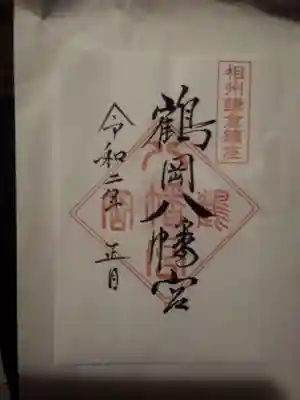 相州鎌倉鎮座
鶴岡八幡宮
令和二年 正月